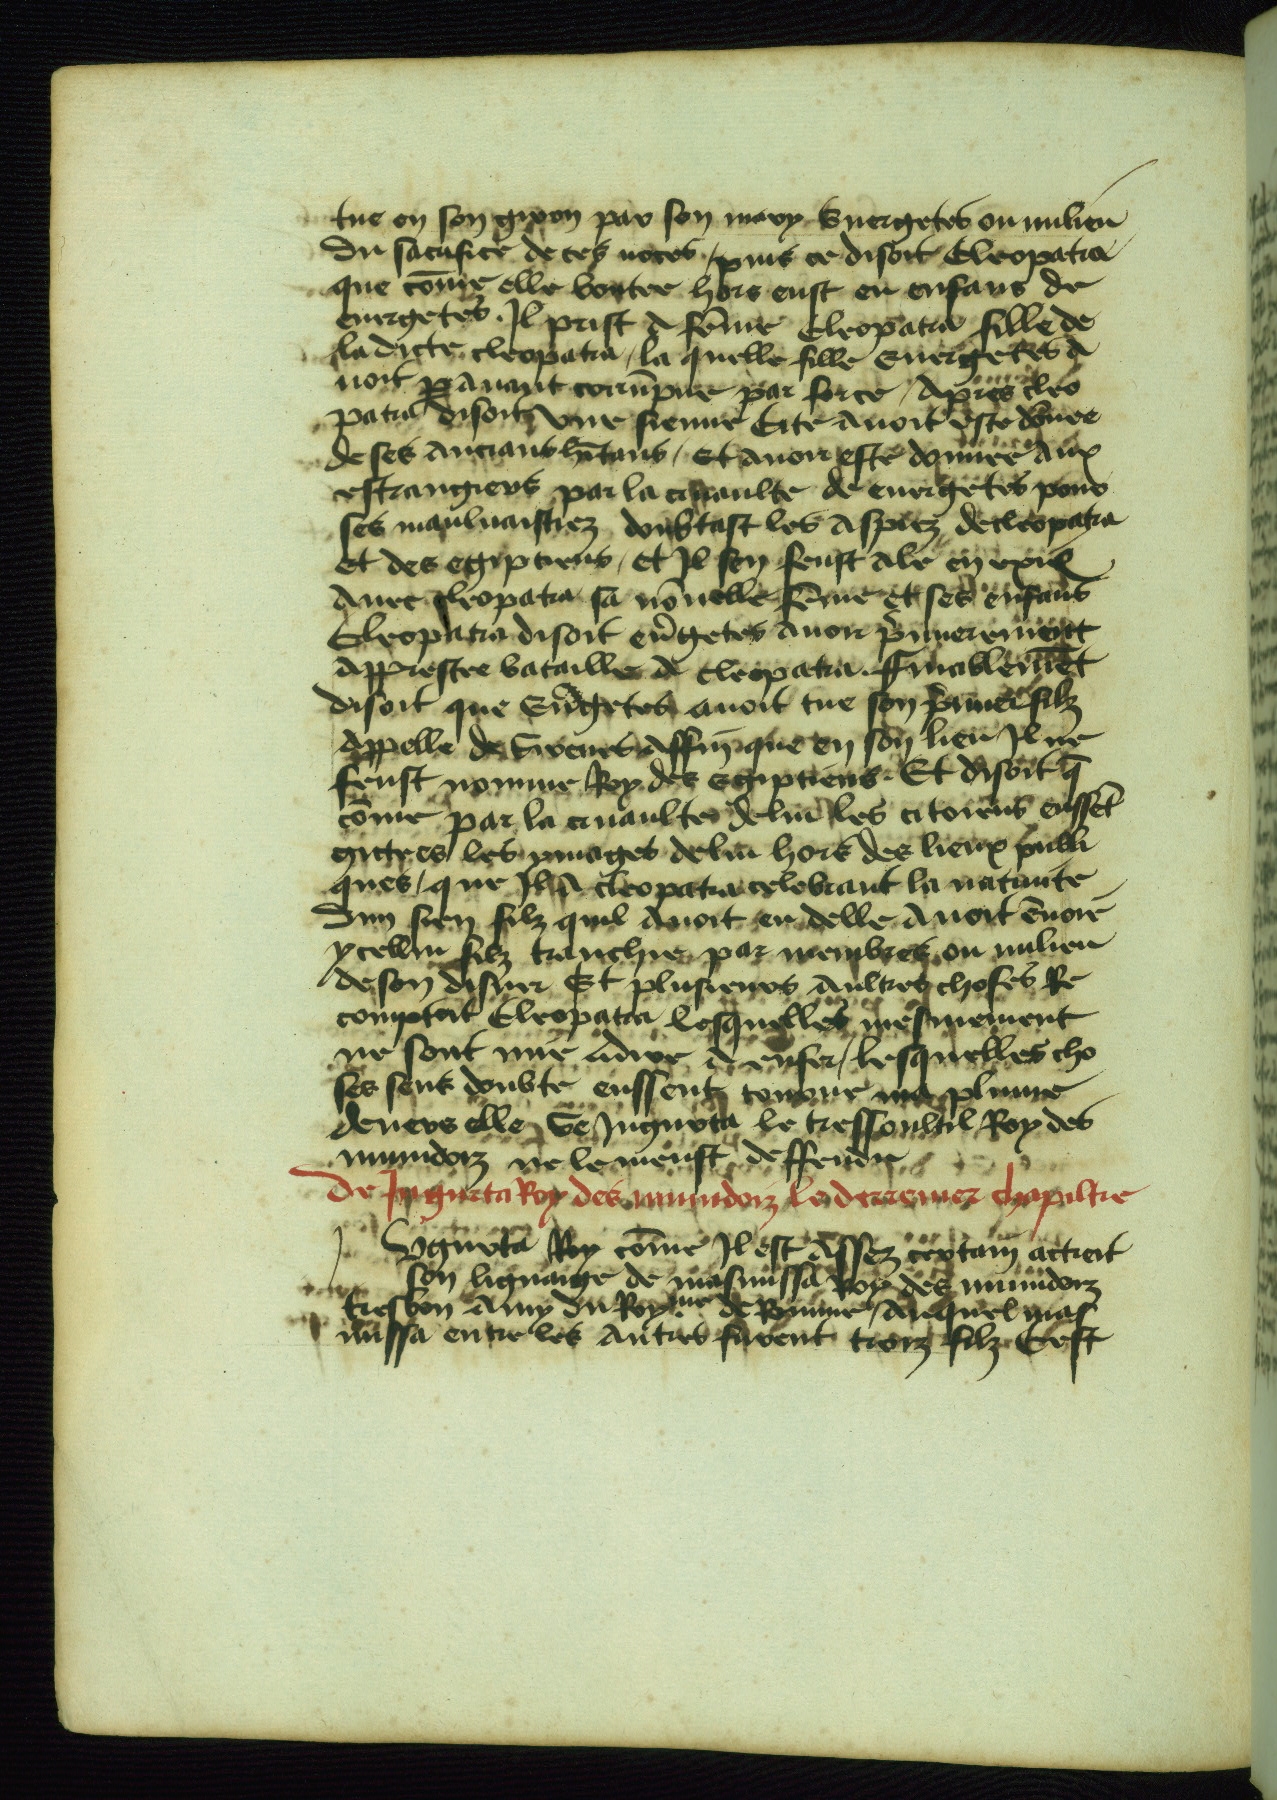 tue en son giron par son mary Energetes ou milieu
Du sacrifice de ces noces / puis ce disoit Cleopatra
que cōme elle boutee hors eust eu enfans de
energetes . Il prist a fēme Cleopatra fille de
la dicte cleopatra / la quelle fille Energetes a
uoit ꝑ auant corrūpue par force / Apres cleo
patra disoit vne sienne Cite auoit este donnee
de ses ancians hītans / et auoir este donnee aux
estrangiers par la cruaulte de energetes pour
ses mauluaistiez doubtast les aspiez de cleopatra
et des egiptiens / et Il sen feust ale en exil
Auec cleopatra sa nouuelle fēme et ses enfans
Cleopatra disoit en̄getes auoir p̄mierement
apprestee bataille a cleopatra . finablemēt
disoit que En̄getes auoit tue son p̄mier filz
appelle de Sirenes affin que en son lieu Il ne
feust nomme Roy des egiptiens . Et disoit q̄
cōme par la cruaulte de lui les citoiens eussēt
gictees les ymages de lui hors des lieux publi
ques / que Il a cleopatra celebrant la natiuite
Dun sien filz quil auoit eu delle auoit ēuoie
ycellui filz tranchie par membres ou milieu
de son disner Et plusieurs aultres choses Re
comptait Cleopatra lesquelles mesmement
ne sont mie adire a enfer / lesquelles cho
ses sens doubte eussent tourne ma plume
deuers elle Se Jugurta le tressoultil Roy des
numidoiz ne le meust deffendu
De Jugurta Roy des numidoiz le derrenier chapiltre
J Vgurta Roy cōme Il est assez certain actreit
son lignaige de masinissa Roy des numidoiz
tresbon amy du Roy.me de Romme / Auquel mas
nissa entre les autres furent troiz filz Cest